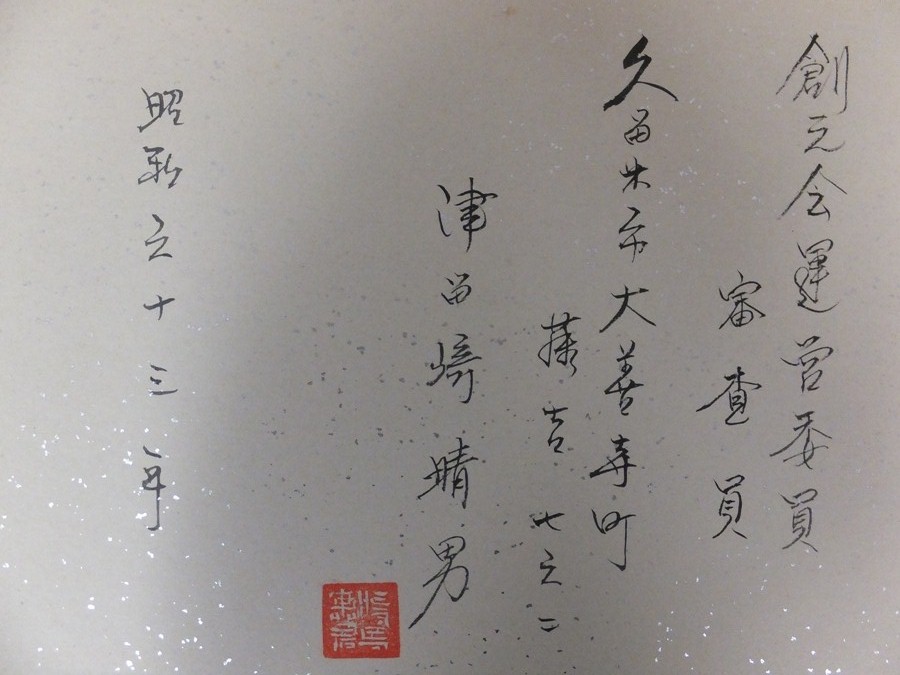 創元会運営委員
審査員
久留米市大善寺町
藤吉七六二
津留﨑晴男
昭和六十三年